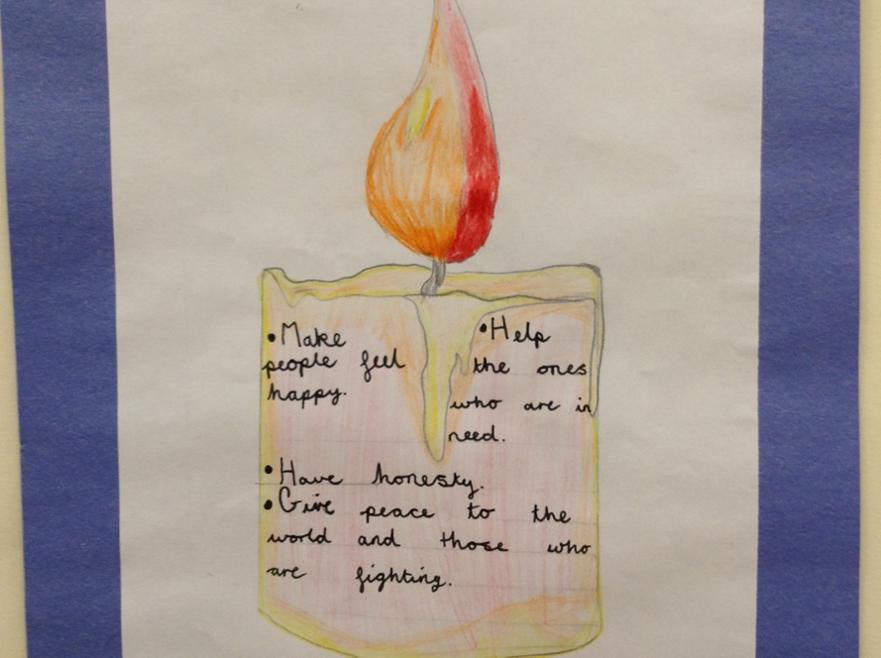 •Make
people feel
happy.
•Help
the ones
who are in
need.
•Have honesky.
•Give peace to the
world and those who
are fighting.